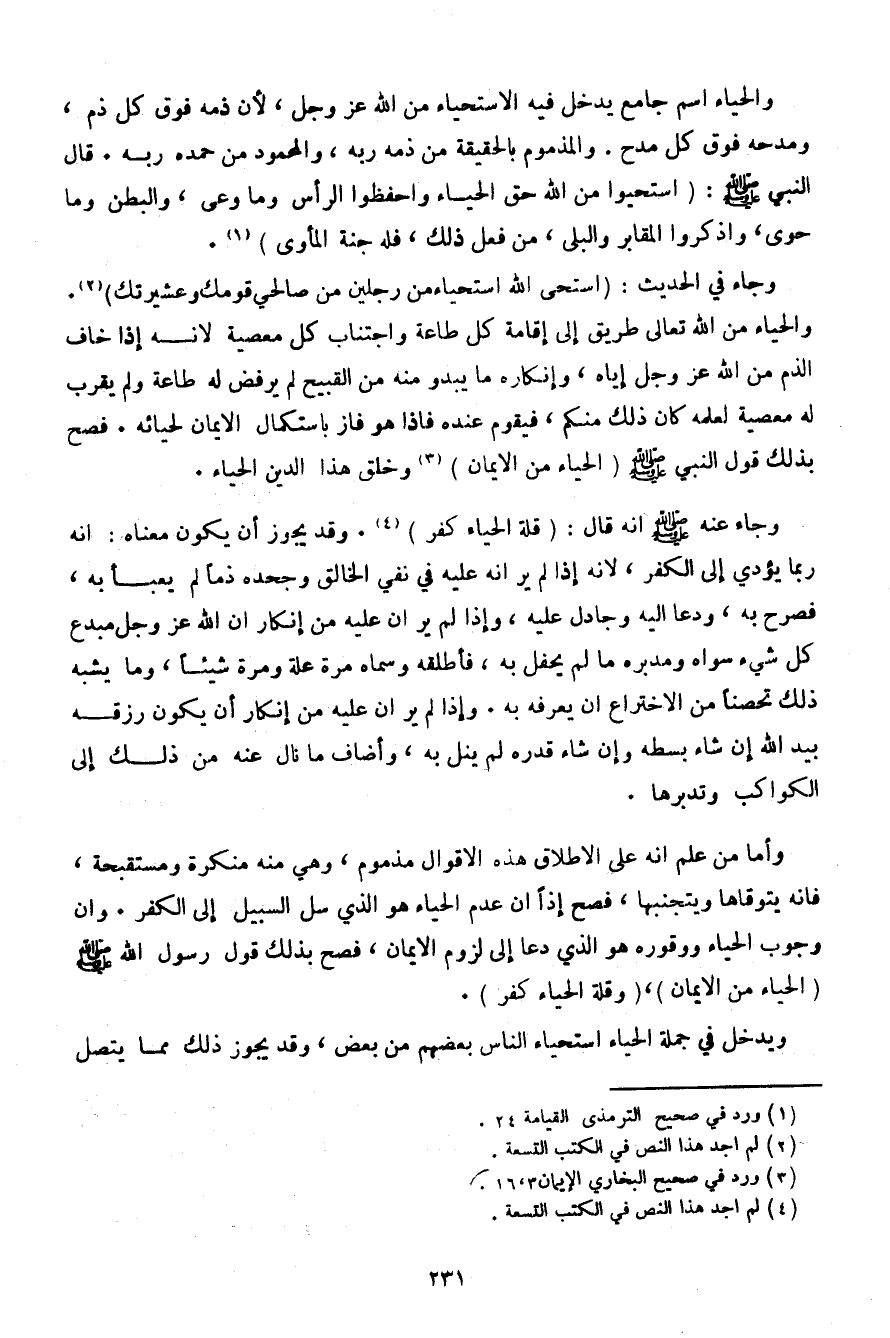 والحياء اسم جامع يدخل فيه الاستحياء من الله عز وجل ، لأن ذمه فوق كل ذم ،
ومدحه فوق كل مدح . والمذموم بالحقيقة من ذمه ربه ، والمحمود من حمده ربـه . قال
النبي ﷺ : ( استحيوا من الله حق الحيـاء واحفظوا الرأس وما وعى ، والبطن وما
حوى، واذكروا المقابر والبلى ، من فعل ذلك ، فله جنة المأوى ) (١) .
وجاء في الحديث : (استحى الله استحياءمن رجلين من صالحي قومك وعشيرتك)(٢).
والحياء من الله تعالى طريق إلى إقامة كل طاعة واجتناب كل معصية لانـــه إذا خاف
الذم من الله عز وجل إياه ، وإنكاره ما يبدو منه من القبيح لم يرفض له طاعة ولم يقرب
له معصية لعلمه كان ذلك منكم ، فيقوم عنده فاذا هو فاز باستكمال الايمان لحيائه . فصح
بذلك قول النبي ﷺ ( الحياء من الايمان ) (٣) وخلق هذا الدين الحياء .
وجاء عنه ﷺ انه قال : ( قلة الحياء كفر ) (٤) . وقد يجوز أن يكون معناه : انه
ربما يؤدي إلى الكفر ، لانه إذا لم ير انه عليه في نفي الخالق وجحده ذماً لم يعبـــأ به ،
فصرح به ، ودعا اليه وجادل عليه ، وإذا لم ير ان عليه من إنكار ان الله عز وجل مبدع
كل شيء سواه ومدبره ما لم يحفل به ، فأطلقه وسماه مرة علة ومرة شيئـاً ، وما يشبه
ذلك تحصناً من الاختراع ان يعرفه به . وإذا لم ير ان عليه من إنكار أن يكون رزقـــه
بيد الله إن شاء بسطه وإن شاء قدره لم ينل به ، وأضاف ما نال عنه من ذلـــك إلى
الكواكب وتدبرها .
وأما من علم انه على الاطلاق هذه الاقوال مذموم ، وهي منه منكرة ومستقبحة ،
فانه يتوقاها ويتجنبها ، فصح إذاً ان عدم الحياء هو الذي سل السبيل إلى الكفر . وان
وجوب الحياء ووقوره هو الذي دعا إلى لزوم الايمان ، فصح بذلك قول رسول الله ﷺ
( الحياء من الايمان )،( وقلة الحياء كفر ) .
ويدخل في جملة الحياء استحياء الناس بعضهم من بعض ، وقد يجوز ذلك ممـا يتصل
(١) ورد في صحيح الترمذى القيامة ٢٤ .
(٢) لم اجد هذا النص في الكتب التسعة .
(٣) ورد في صحيح البخاري الإيمان ٣،١٦ .
(٤) لم اجد هذا النص في الكتب التسعة .
٢٣١